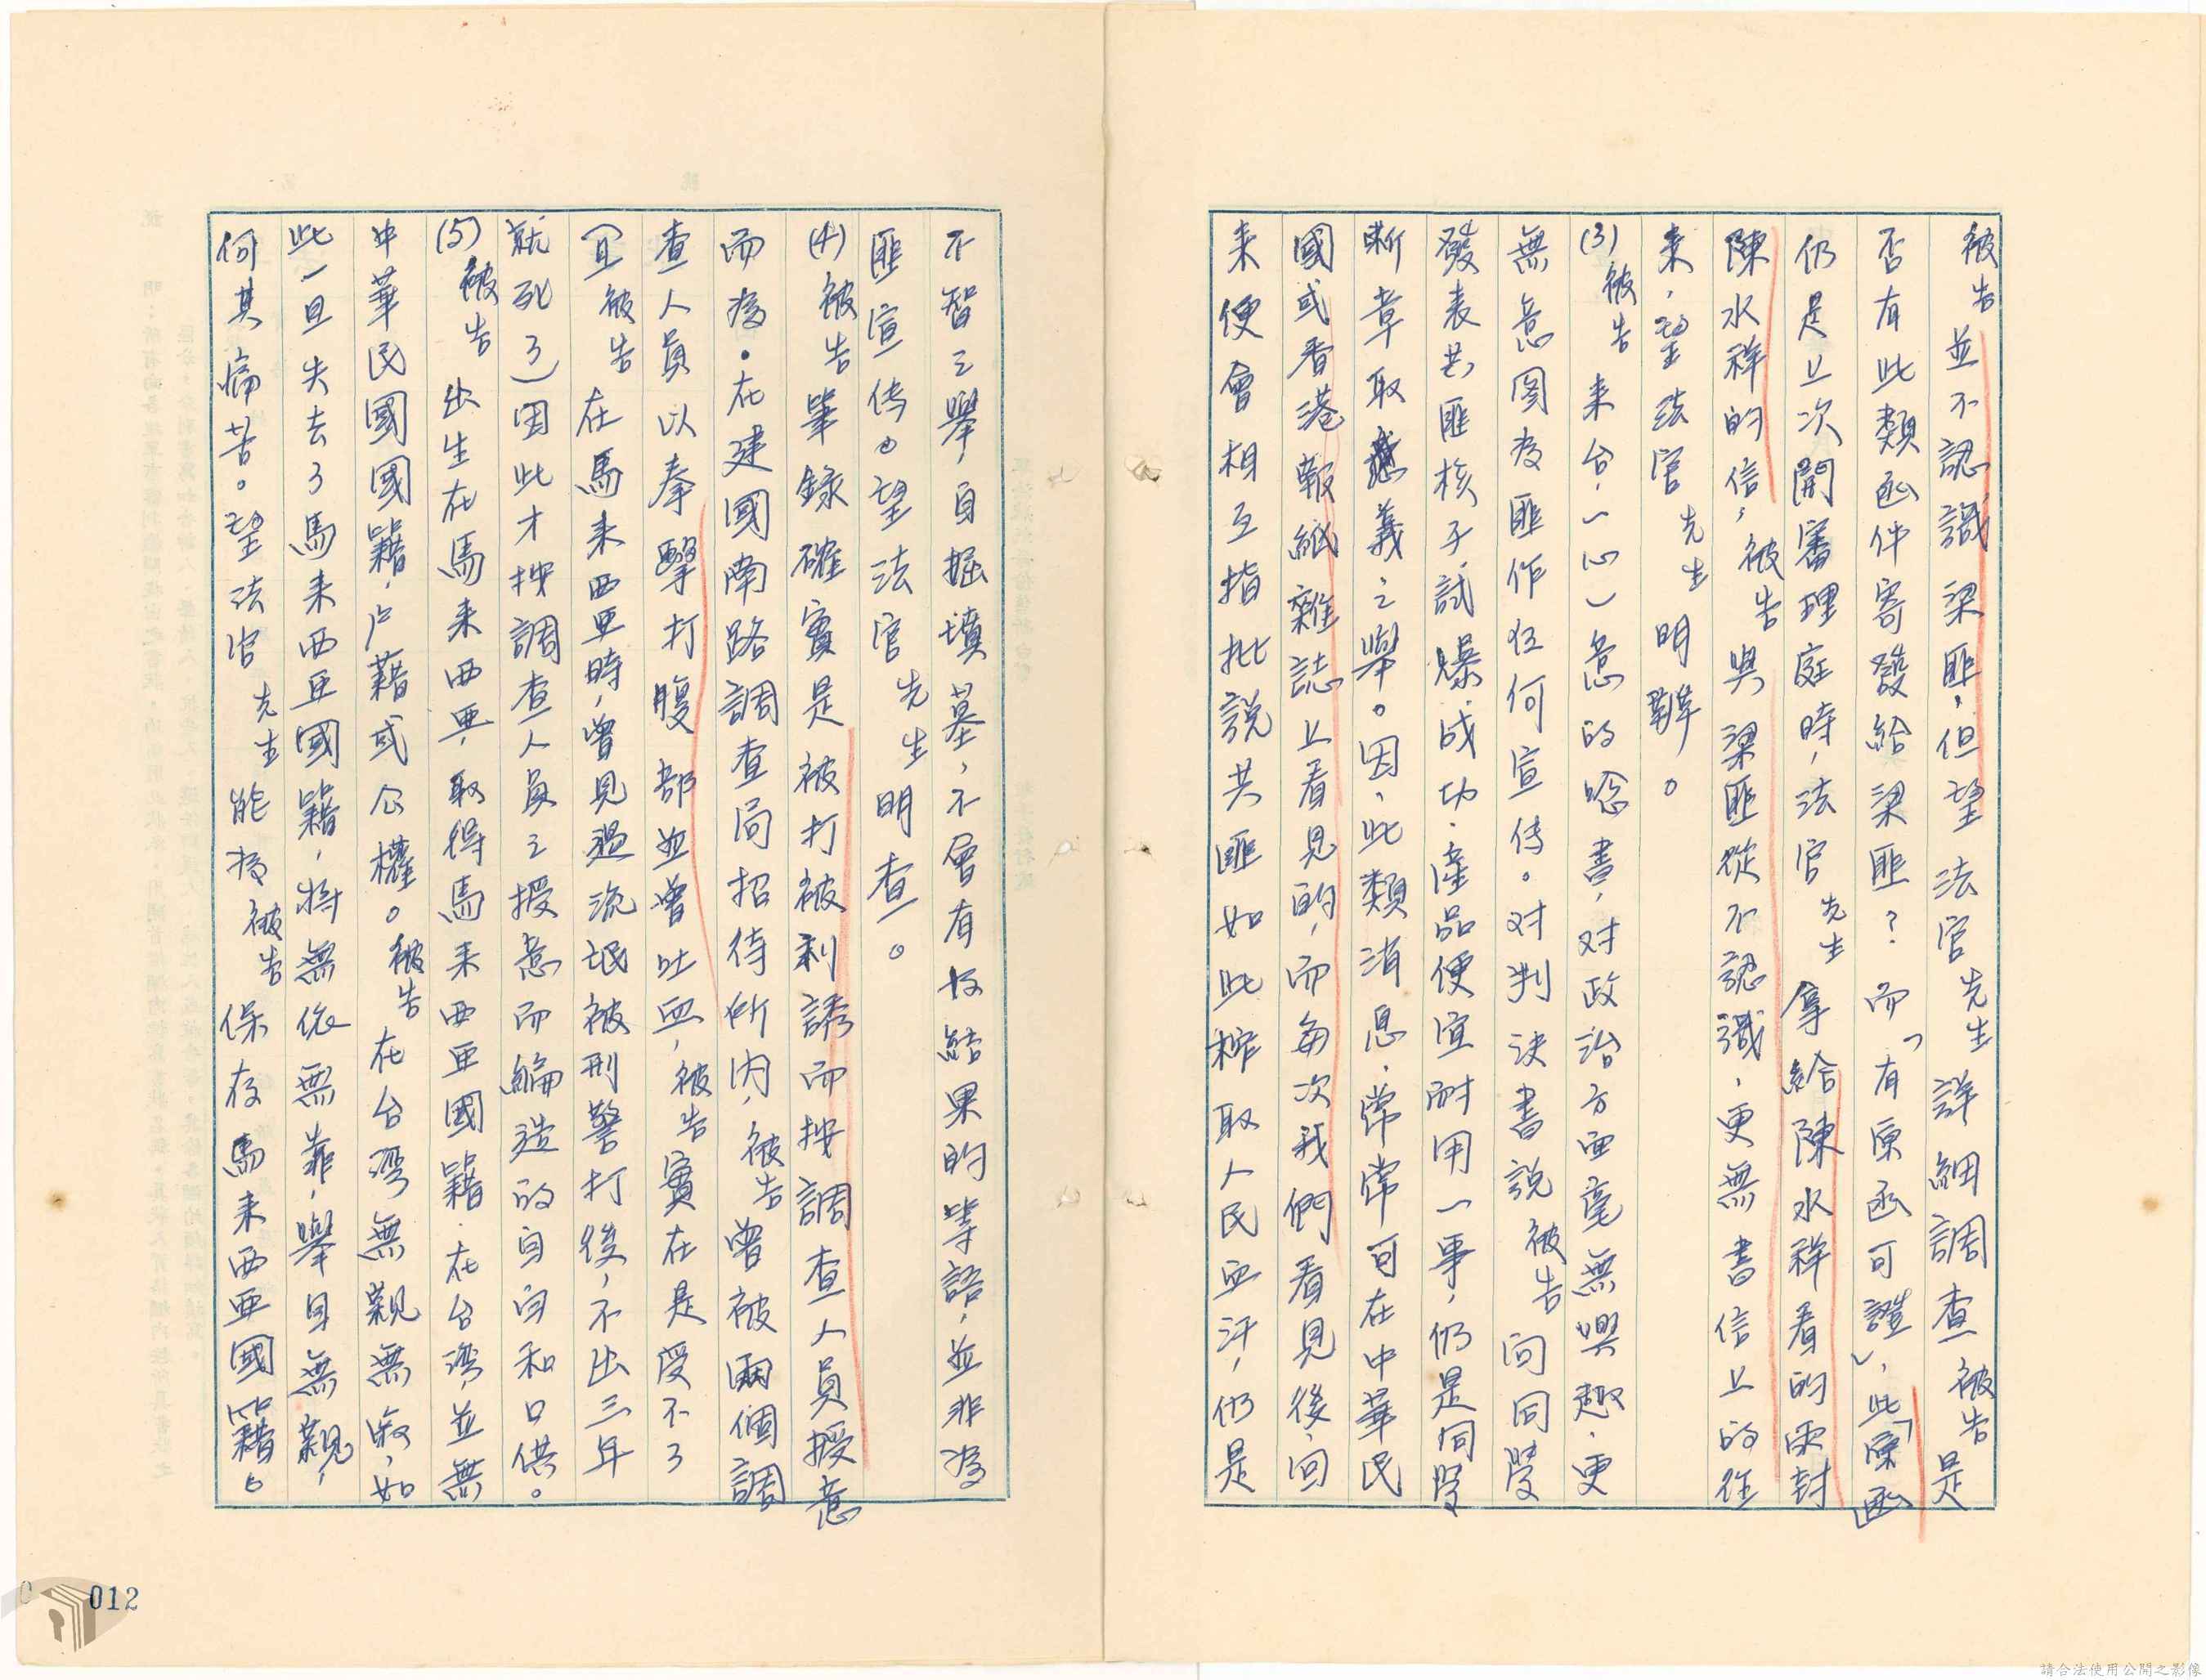 被告並不認識梁匪，但望法官先生詳細調查被告是
否有此類函件寄發給梁匪？而「有原函可證」，此「原函」
仍是上次開審理庭時，法官先生拿給陳水祥看的兩封
陳水祥的信，被告與梁匪從不認識，更無書信上的往
来，望法官先生明辯。
(3)被告来台，一心一意的唸書，对政治方面毫無興趣，更
無意图为匪作任何宣传。对判决書說被告向同學
發表共匪核子試爆成功，產品便宜耐用一事，仍是同學
斷章取義之舉。因，此類消息，常常可在中華民
國或香港報紙雜誌上看見的，而每次我們看見後，回
来便會相互指批說共匪如此榨取人民血汗，仍是
不智之舉，自掘墳墓，不會有好結果的等語，並非为
匪宣传。望法官先生明查。
(4)被告筆錄確實是被打被利誘而按調查人員授意
而为。在建國南路調查局招待所內，被告曾被兩個調
查人員以拳擊打腹部並曾吐血，被告實在是受不了
(且被告在馬来西亜時，曾見過流氓被刑警打後，不出三年
就死了)因此才按調查人員之授意而編造的自白和口供。
(5)被告出生在馬来西亜，取得馬来西亜國籍，在台湾，並無
中華民國國籍，户籍或公權。被告在台湾無親無戚，如
此一旦失去了馬来西亜國籍，将無依無靠，舉目無親，
何其痛苦。望法官先生能按被告保存馬来西亜國籍。
012
請合法使用公開之影像